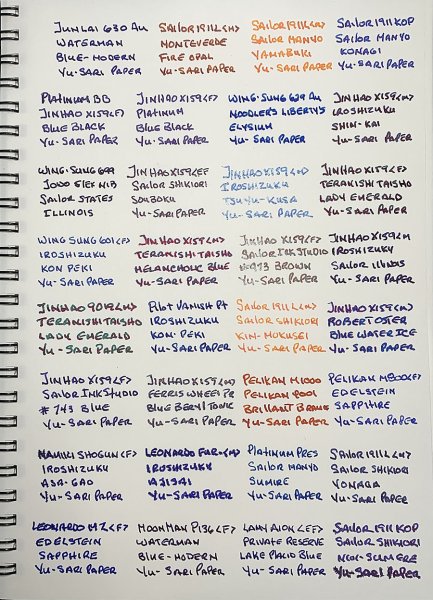 JUNLAI 630 AU
WATERMAN
BLUE-MODERN
YU-SARI PAPER
SAILOR 1911L <M>
MONTEVERDE
FIRE OPAL
YU-SARI PAPER
SAILOR 1911L <M>
SAILOR MANYO
YAMABUKI
YU-SARI PAPER
SAILOR 1911 KOP
SAILOR MANYO
KONAGI
YU-SARI PAPER
PLATINUM BB
JINHAO X159 <F>
BLUE BLACK
YU-SARI PAPER
JINHAO X159 <F>
PLATINUM
BLUE BLACK
YU-SARI PAPER
WING-SUNG 629 AU
NOODLER'S LIBERTY'S
ELYSIUM
YU-SARI PAPER
JINHAO X159 <M>
IROSHIZUKU
SHIN-KAI
YU-SARI PAPER
WING-SUNG 699
JOWO STEEL NIB
SAILOR STATES
ILLINOIS
JINHAO X159 <EF
SAILOR SHIKIORI
SOUBOKU
YU-SARI PAPER
JINHAO X159
IROSHIZUKU
TSUYU-KUSA
YU-SARI PAPER
JINHAO X159 <F>
TERANISHI TAISHO
LADY EMERALD
YU-SARI PAPER
WING SUNG 601 <F>
IROSHIZUKU
KON PEKI
YU-SARI PAPER
JINHAO X159 <M>
TERANISHI TAISHO
MELANCHOLIC BLUE
YU-SARI PAPER
JINHAO X159 <F>
SAILOR INK STUDIO
#973 BROWN
YU-SARI PAPER
JINHAO X159 M
IROSHIZUKU
SAILOR ILLINOIS
YU-SARI PAPER
JINHAO 9019 <M>
TERANISHI TAISHO
LADY EMERALD
YU-SARI PAPER
PILOT VANISH PT
IROSHIZUKU
KON-PEKI
YU-SARI PAPER
SAILOR 1911L <M>
SAILOR SHIKIORI
KIN-MOKUSEI
YU-SARI PAPER
JINHAO X159 <M>
ROBERT OSTER
BLUE WATER ICE
YU-SARI PAPER
JINHAO X159 <F>
SAILOR INK STUDIO
#743 BLUE
YU-SARI PAPER
JINHAO X159 <M>
FERRIS WHEEL PR
BLUE BERYL TONIC
YU-SARI PAPER
PELIKAN M1000
PELIKAN 4001
BRILLIANT BROWN
YU-SARI PAPER
PELIKAN M800 <F>
EDELSTEIN
SAPPHIRE
YU-SARI PAPER
NAMIKI SHOGUN <F>
IROSHIZUKU
ASA-GAO
YU-SARI PAPER
LEONARDO FUR- <M>
IROSHIZUKU
AJISAI
YU-SARI PAPER
PLATINUM PRES
SAILOR MANYO
SUMIRE
YU-SARI PAPER
SAILOR 1911L <M>
SAILOR SHIKIORI
YONAGA
YU-SARI PAPER
LEONARDO MZ <F>
EDELSTEIN
SAPPHIRE
YU-SARI PAPER
MOONMAN P136 <F>
WATERMAN
BLUE-MODERN
YU-SARI PAPER
LAMY AION <EF>
PRIVATE RESERVE
LAKE PLACID BLUE
YU-SARI PAPER
SAILOR 1911 KOP
SAILOR SHIKIORI
NIOI-SUMIRE
YU-SARI PAPER